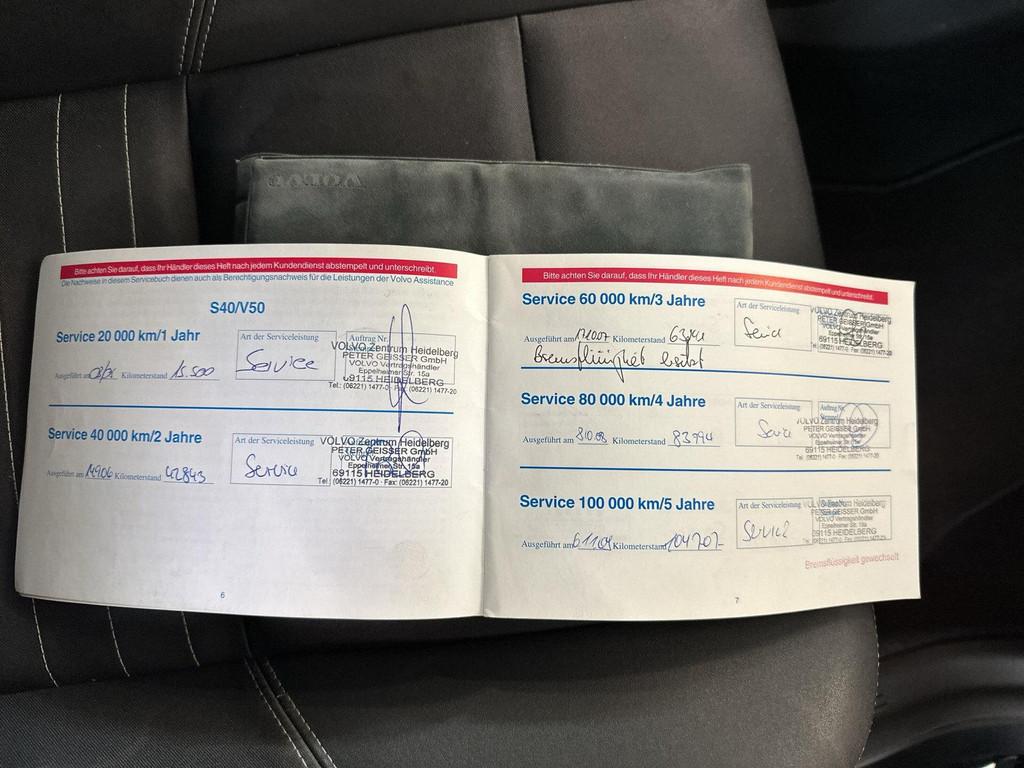 VOLVO
Bitte achten Sie darauf, dass Ihr Händler dieses Heft nach jedem Kundendienst abstempelt und unterschreibt.
Die Nachweise in diesem Servicebuch dienen auch als Berechtigungsnachweis für die Leistungen der Volvo Assistance
S40/V50
Service 20 000 km/1 Jahr
Art der Serviceleistung
Auftrag Nr.
Service
VOLVO Zentrum Heidelberg
PETER GEISSER GmbH
VOLVO Vertragshändler
Eppelheimer Str. 15a
69115 HEIDELBERG
Tel.: (06221) 1477-0 · Fax: (06221) 1477-20
Ausgeführt am Kilometerstand 15.500
Service 40 000 km/2 Jahre
Art der Serviceleistung
Service
VOLVO Zentrum Heidelberg
PETER GEISSER GmbH
VOLVO Vertragshändler
Eppelheimer Str. 15a
69115 HEIDELBERG
Tel.: (06221) 1477-0 · Fax: (06221) 1477-20
Ausgeführt am Kilometerstand 42843
6
Bitte achten Sie darauf, dass Ihr Händler dieses Heft nach jedem Kundendienst abstempelt und unterschreibt.
Service 60 000 km/3 Jahre
Art der Serviceleistung
Service
VOLVO Zentrum Heidelberg
PETER GEISSER GmbH
VOLVO Vertragshändler
Eppelheimer Str. 15a
69115 HEIDELBERG
Tel.: (06221) 1477-0 · Fax: (06221) 1477-20
Ausgeführt am Kilometerstand
Service 80 000 km/4 Jahre
Art der Serviceleistung
Auftrag Nr.
Service
VOLVO Zentrum Heidelberg
PETER GEISSER GmbH
VOLVO Vertragshändler
Eppelheimer Str. 15a
69115 HEIDELBERG
Tel.: (06221) 1477-0 · Fax: (06221) 1477-20
Ausgeführt am 8.10.08 Kilometerstand 83794
Service 100 000 km/5 Jahre
Art der Serviceleistung
Service
VOLVO Zentrum Heidelberg
PETER GEISSER GmbH
VOLVO Vertragshändler
Eppelheimer Str. 15a
69115 HEIDELBERG
Tel.: (06221) 1477-0 · Fax: (06221) 1477-20
Ausgeführt am 6.11.09 Kilometerstand 104707
Bremsflüssigkeit gewechselt
7